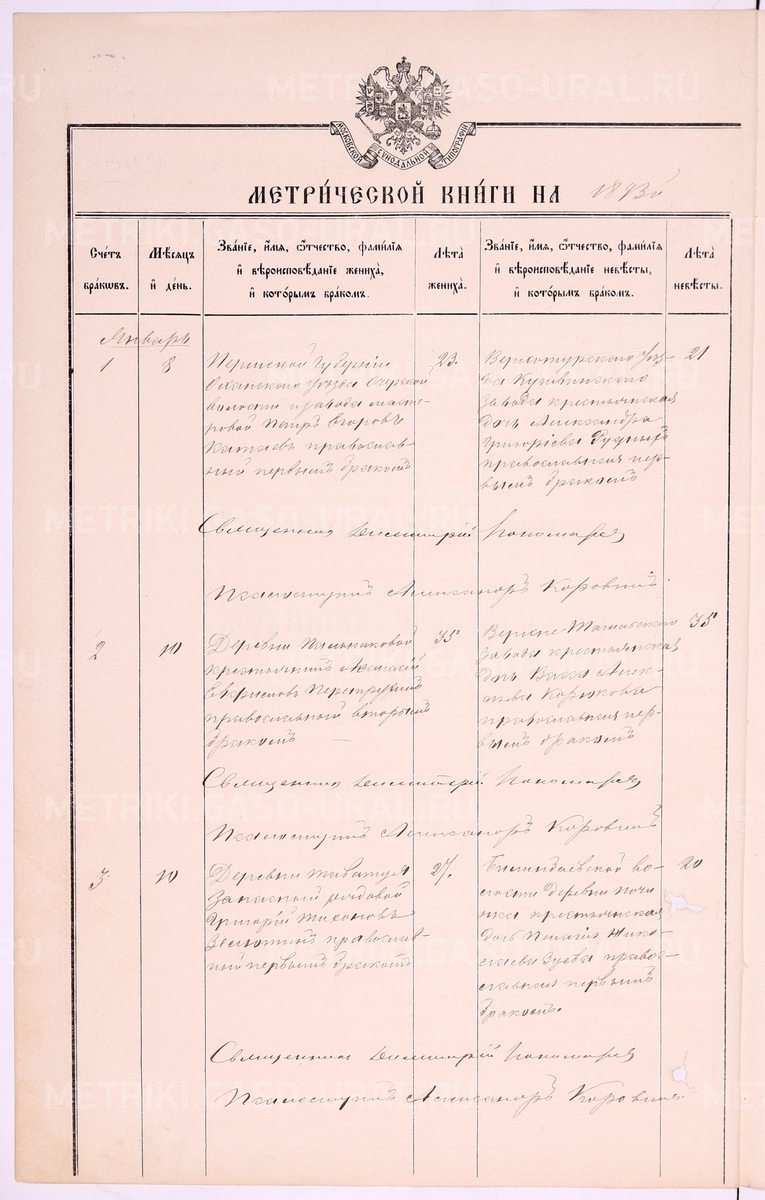 METRIKI.GASO-URAL.RU
МОСКОВСКОЙ СѴНОДАЛЬНОЙ ТИПОГРАФІИ
МЕТРИ́ЧЕСКОЙ КНИ́ГИ НА 1893й
Счетъ браковъ.
Мѣсяцъ и день.
Званіе, имя, отчество, фамилія и вѣроисповѣданіе жениха, и которымъ бракомъ.
Лѣта жениха.
Званіе, имя, отчество, фамилія и вѣроисповѣданіе невѣсты, и которымъ бракомъ.
Лѣта невѣсты.
Январь
1
8
Пермской Губерніи
Оханскаго уѣзда Очерской
волости и завода масте-
ровой Петръ Егоровъ
Катаевъ православ-
ный первымъ бракомъ
23.
Верхотурскаго уѣз-
да Кушвинскаго
завода крестьянская
дочь Александра
Григоріева
православная пер-
вымъ бракомъ
21
Священникъ Димитрій Пономаревъ
Псаломщикъ Александръ Коровинъ
2
10
Деревни
крестьянинъ
православный вторымъ
бракомъ
35
Верхне-Тагильскаго
завода крестьянская
дочь Васса Алек-
православная пер-
вымъ бракомъ
35
Священникъ Димитрій Пономаревъ
Псаломщикъ Александръ Коровинъ
3
10
Деревни
Запасный рядовой
Григорій Тихоновъ
православ-
ный первымъ бракомъ
27.
Билимбаевской во-
лости деревни Почи
нка крестьянская
дочь Пелагія Нико-
лаева Зуева право-
славная первымъ
бракомъ.
20
Священникъ Димитрій Пономаревъ
Псаломщикъ Александръ Коровинъ